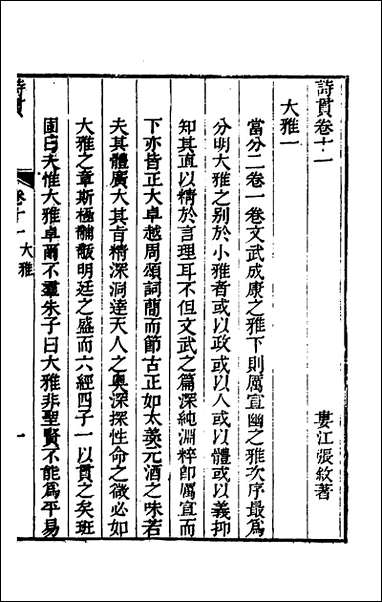 詩貫卷十一
婁江張敘著
大雅一
當分二卷一卷文武成康之雅下則厲宣幽之雅次序最爲
分明大雅之别於小雅者或以政或以人或以體或以義抑
知其直以精於言理耳不但文武之篇深純淵粹卽厲宣而
下亦皆正大卓越周頌詞簡而節古正如太羹元酒之味若
夫其體廣大其旨精深洞達天人之奥深探性命之微必如
大雅之章斯極黼黻明廷之盛而六經四子一以貫之矣班
固曰夫惟大雅卓爾不羣朱子曰大雅非聖賢不能爲平易
詩貫
卷十一
大雅
一